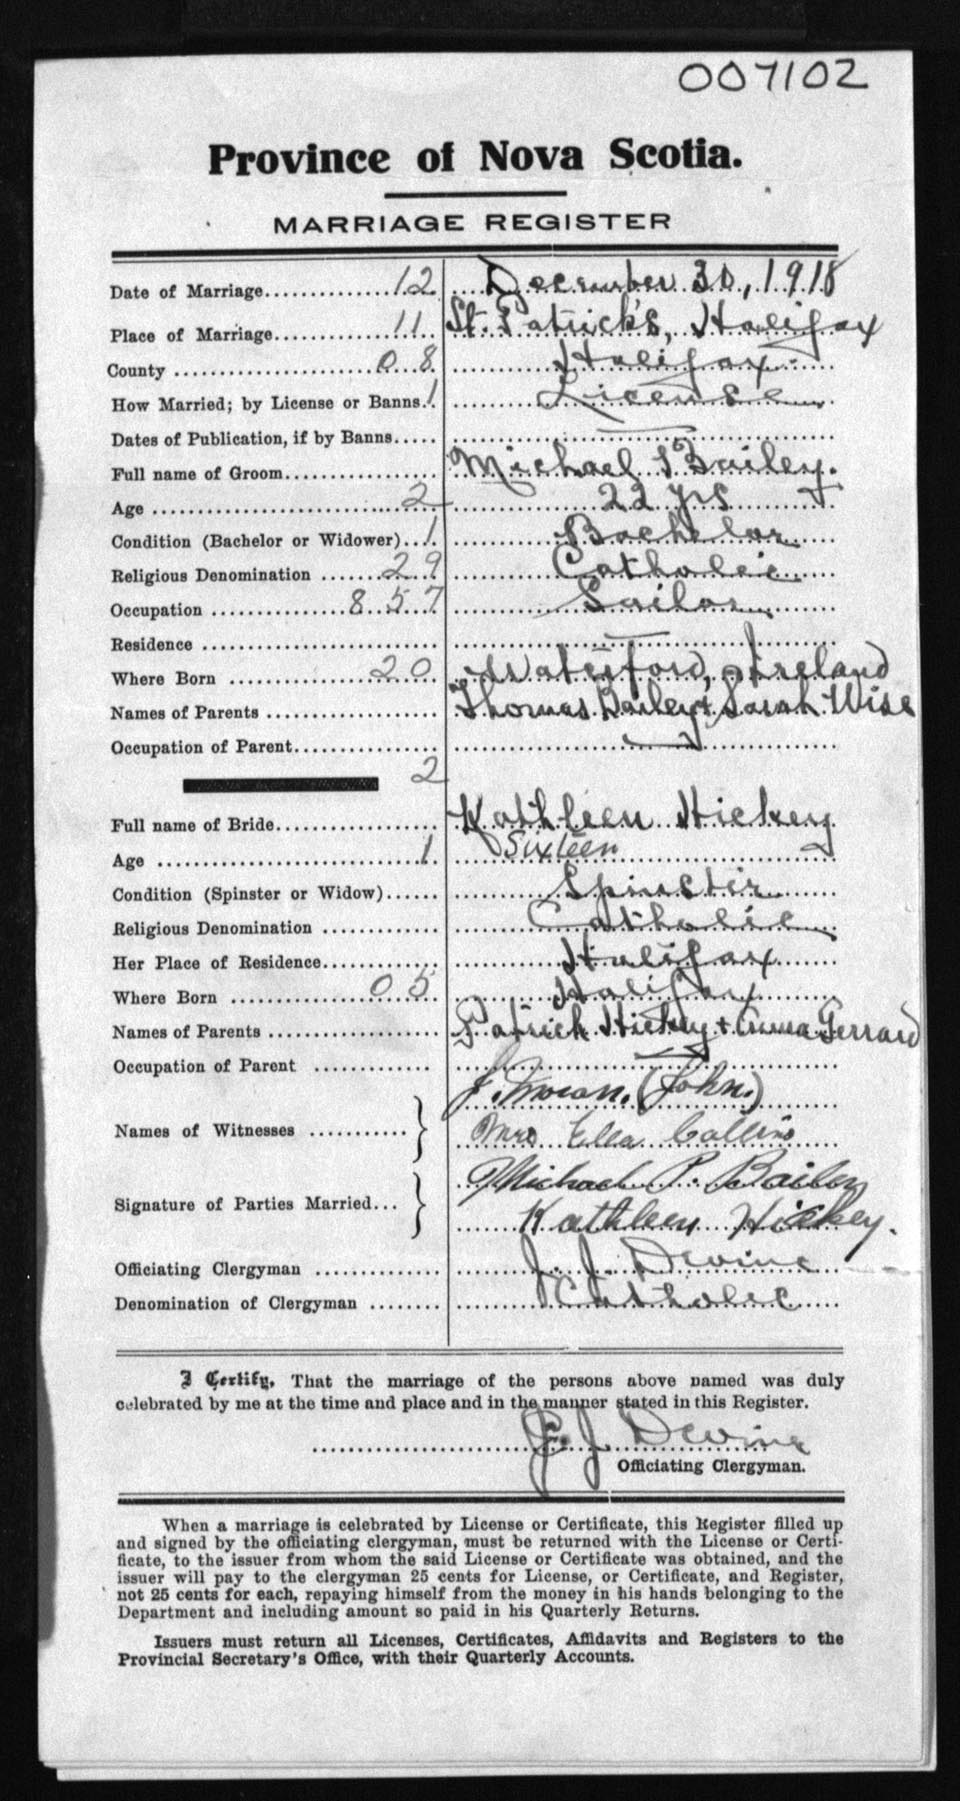 007102
Province of Nova Scotia.
MARRIAGE REGISTER
Date of Marriage 12 December 30, 1918
Place of Marriage 11 St. Patrick's, Halifax
County 08 Halifax
How Married; by License or Banns 1 License
Dates of Publication, if by Banns —
Full name of Groom Michael P Bailey.
Age 2 22 yrs
Condition (Bachelor or Widower) 1 Bachelor
Religious Denomination 29 Catholic
Occupation 857 Sailor
Residence —
Where Born 20 Waterford, Ireland
Names of Parents Thomas Bailey & Sarah Wise
Occupation of Parent —
2
Full name of Bride Kathleen Hickey
Age 1 Sixteen
Condition (Spinster or Widow) Spinster
Religious Denomination Catholic
Her Place of Residence Halifax
Where Born 05 Halifax
Names of Parents Patrick Hickey + Anna Gerrard
Occupation of Parent —
J. (John.)
Names of Witnesses
Mrs Ella Collins
Michael P. Bailey
Signature of Parties Married
Kathleen Hickey.
Officiating Clergyman J. J. Devine
Denomination of Clergyman Catholic
I Certify, That the marriage of the persons above named was duly
celebrated by me at the time and place and in the manner stated in this Register.
J. J. Devine
Officiating Clergyman.
When a marriage is celebrated by License or Certificate, this Register filled up
and signed by the officiating clergyman, must be returned with the License or Certi-
ficate, to the issuer from whom the said License or Certificate was obtained, and the
issuer will pay to the clergyman 25 cents for License, or Certificate, and Register,
not 25 cents for each, repaying himself from the money in his hands belonging to the
Department and including amount so paid in his Quarterly Returns.
Issuers must return all Licenses, Certificates, Affidavits and Registers to the
Provincial Secretary's Office, with their Quarterly Accounts.